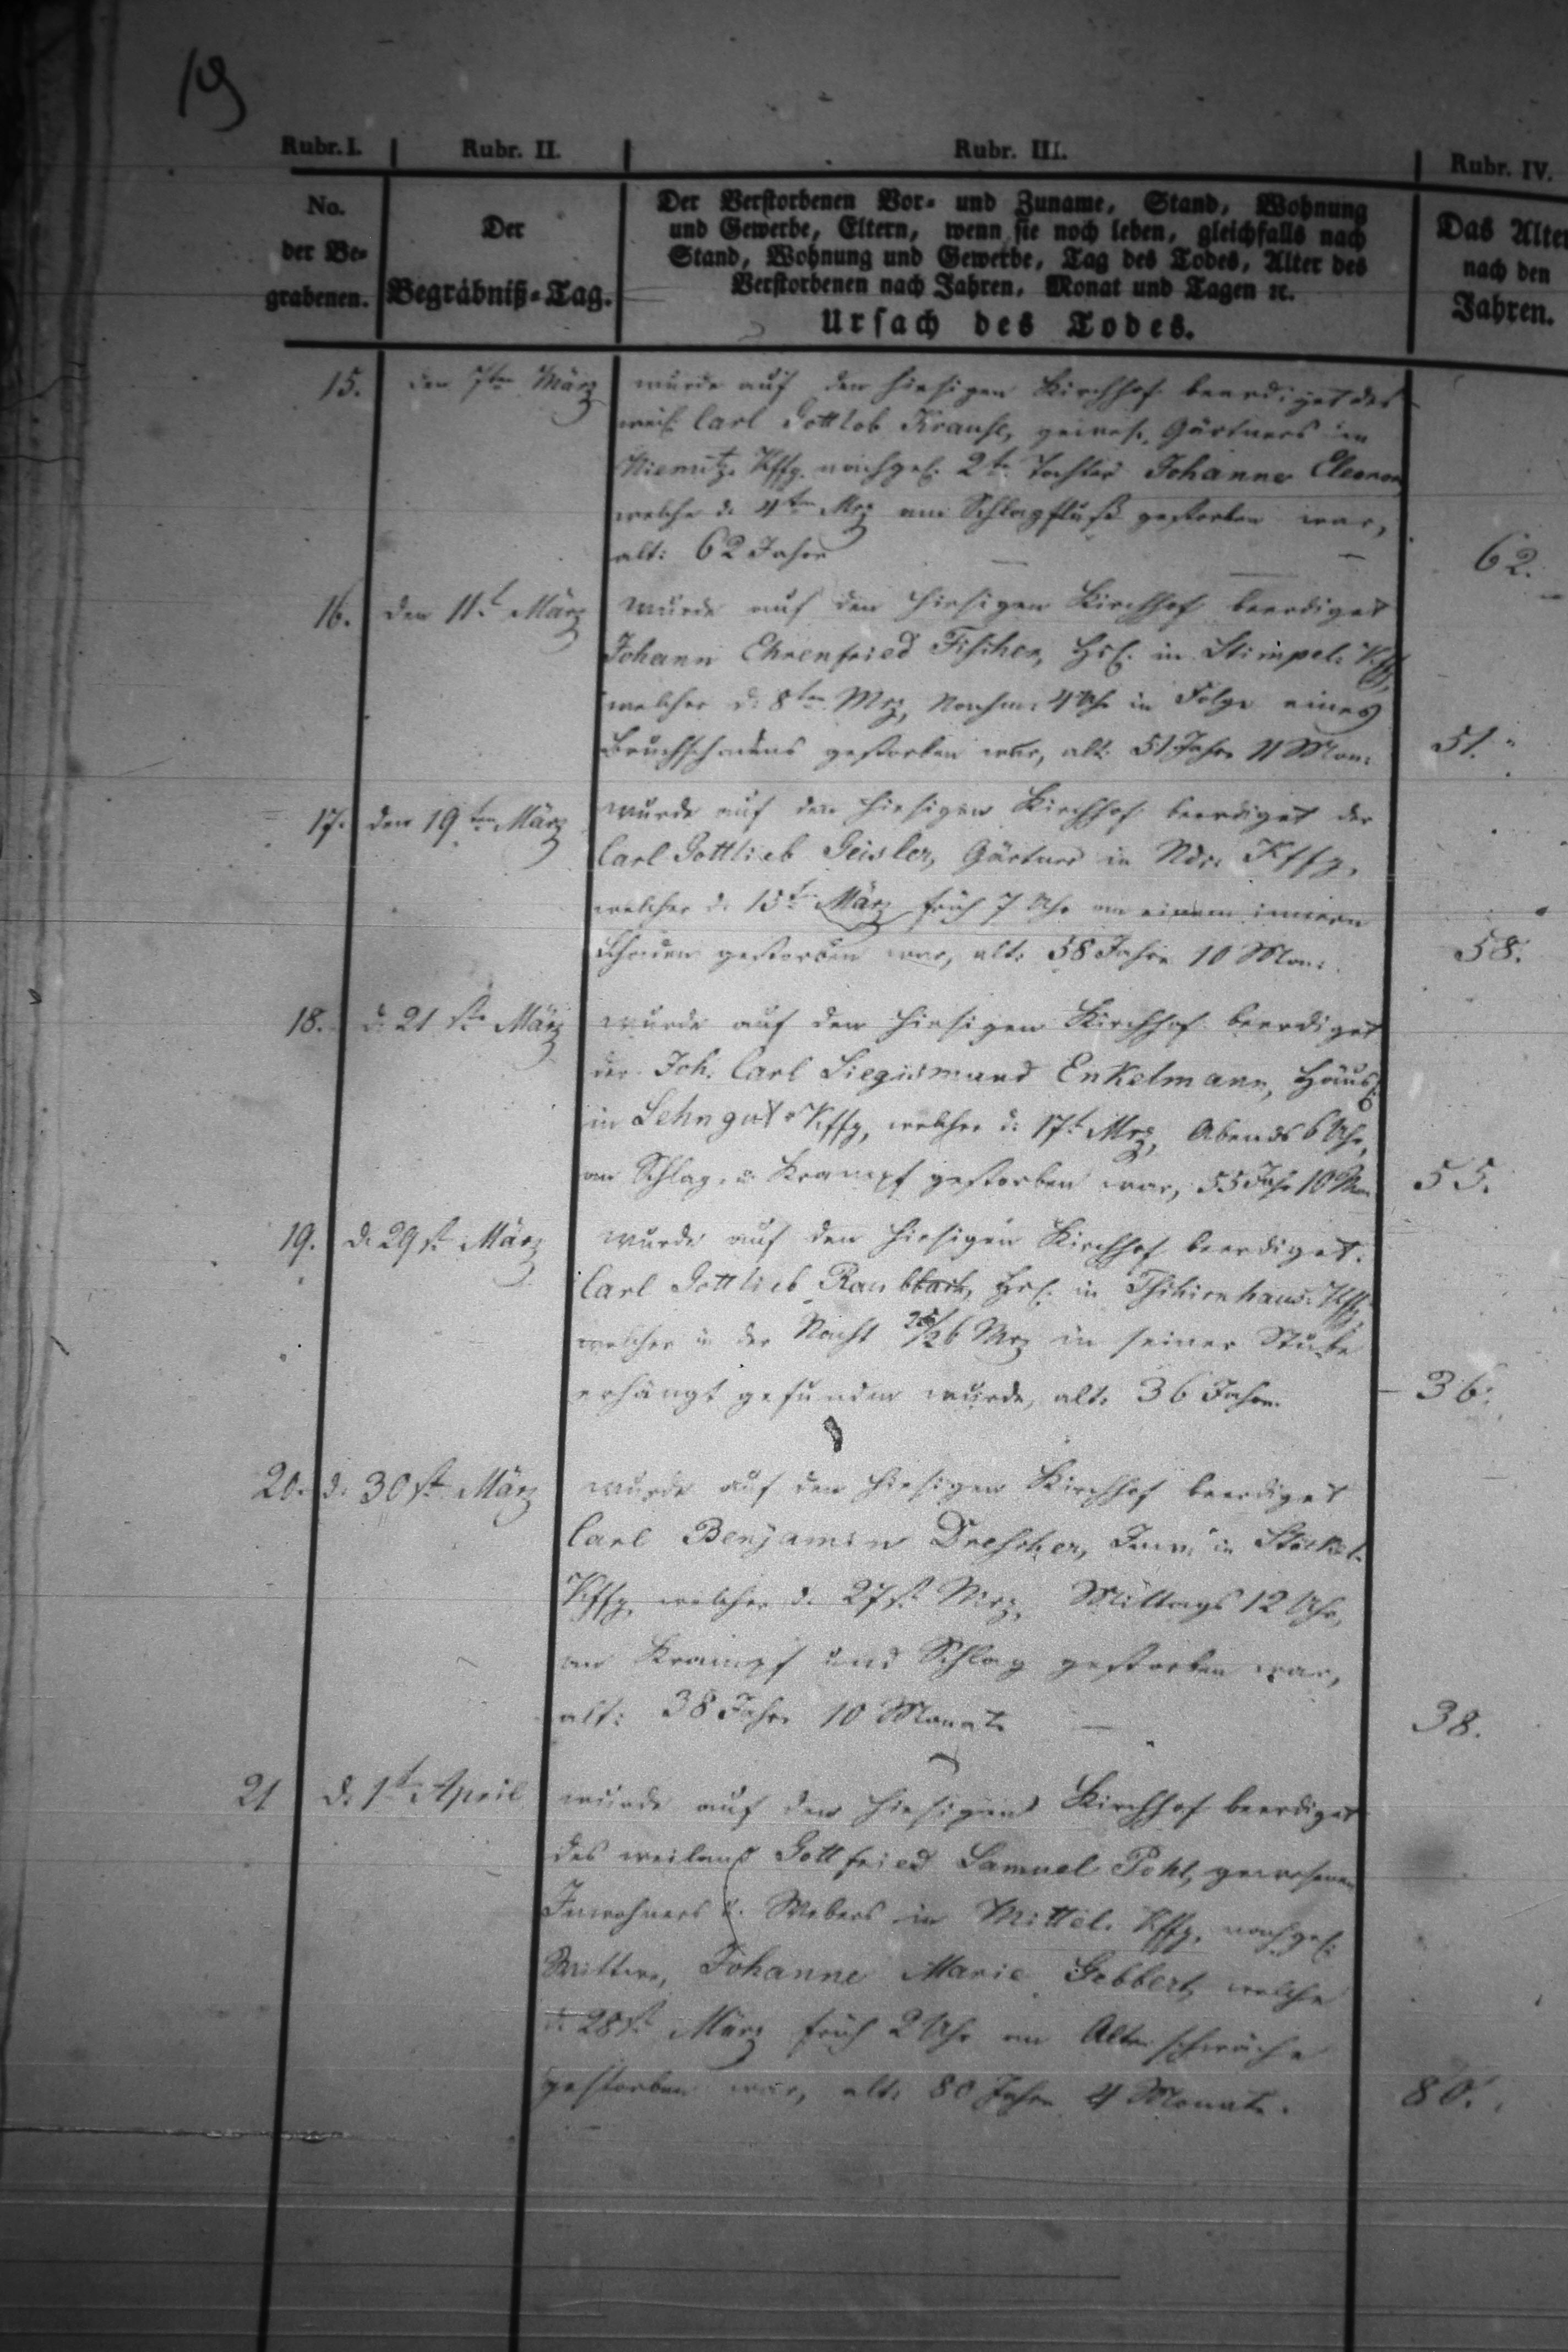 19
Rubr. I. Rubr. II. Rubr. III. Rubr. IV.
No.
der Be-
grabenen.
Der
Begräbniß-Tag.
Der Verstorbenen Vor- und Zuname, Stand, Wohnung
und Gewerbe, Eltern, wenn sie noch leben, gleichfalls nach
Stand, Wohnung und Gewerbe, Tag des Todes, Alter des
Verstorbenen nach Jahren, Monat und Tagen ꝛc.
Ursach des Todes.
Das Alter
nach den
Jahren.
15. den 7ten März wurde auf den hiesigen Kirchhof beerdiget des
weil. Carl Gottlob Krause, gewes. Gärtners in
Niemitz. Kffg. nachgel. 2te Tochter Johanne Eleonor,
welche d. 4ten Mrz am Schlagfluß gestorben war,
alt: 62 Jahre 62.
16. den 11t März wurde auf den hiesigen Kirchhof beerdiget
Johann Ehrenfried Fischer, Hsl. in Stimpel. Kffg,
welcher d. 8ten Mrz, Nachm. 4 Uhr in Folge eines
Bruchschadens gestorben war, alt. 51 Jahre 11 Mon. 51.
17. den 19ten März wurde auf den hiesigen Kirchhof beerdiget der
Carl Gottlieb Geisler, Gärtner in Ndr. Kffg,
welcher d. 15t März früh 7 Uhr an einem innern
Schaden gestorben war, alt. 58 Jahre 10 Mon. 58.
18. d. 21ste März wurde auf den hiesigen Kirchhof beerdiget
der Joh. Carl Siegismund Enkelmann, Häusl.
in Lehngut Kffg, welcher d. 17t Mrz, Abends 6 Uhr,
an Schlag. u. Krampf gestorben war, 55 Jahr 10 Mon 55.
19. d. 29st März wurde auf den hiesigen Kirchhof beerdiget.
Carl Gottlieb Raubbach, Hsl. in Tschirnhaus. Kffg,
welcher in der Nacht 25/26 Mrz in seiner Stube
erhängt gefunden wurde, alt. 36 Jahre. 36.
20. d. 30st März wurde auf den hiesigen Kirchhof beerdiget
Carl Benjamin Drescher, Inw. in Stöckel.
Kffg, welcher d. 27st Mrz, Mittags 12 Uhr,
an Krampf und Schlag gestorben war,
alt: 38 Jahre 10 Monate 38.
21 d. 1te April wurde auf den hiesigen Kirchhof beerdiget
des weiland Gottfried Samuel Pohl, gewesenen
Inwohners u. Webers in Mittel. Kffg, nachgel.
Wittwe, Johanne Marie Gebbert, welche
d. 28st März früh 2 Uhr an Altersschwäche
gestorben war, alt. 80 Jahre 4 Monate. 80.